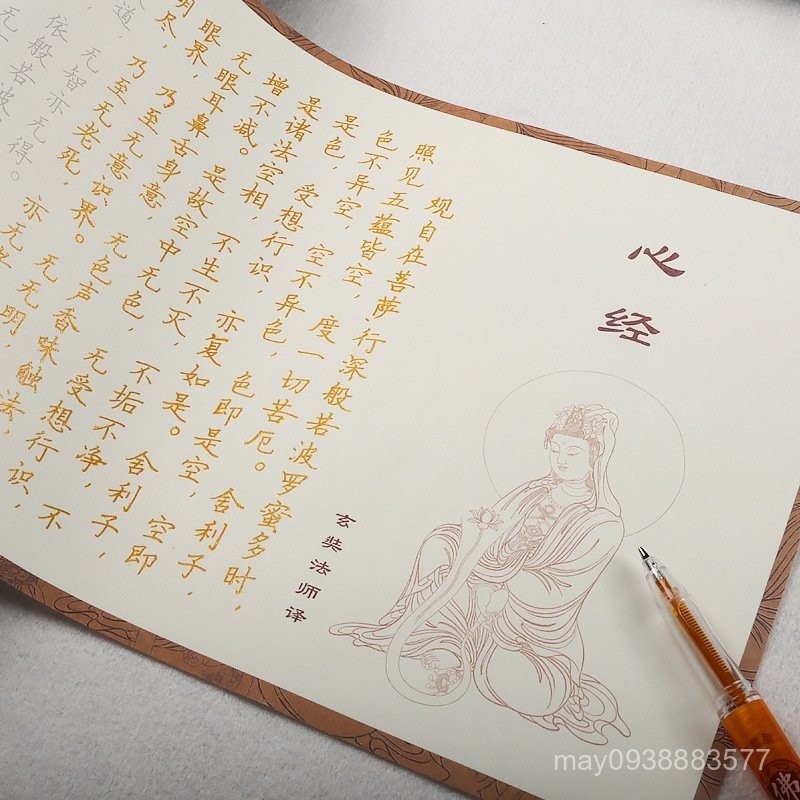 心经
玄奘法师译
观自在菩萨行深般若波罗蜜多时，
照见五蕴皆空，度一切苦厄。舍利子，
色不异空，空不异色，色即是空，空即
是色，受想行识，亦复如是。舍利子，
是诸法空相，不生不灭，不垢不净，不
增不减。是故空中无色，无受想行识，
无眼耳鼻舌身意，无色声香味触法，
眼界，乃至无意识界。无无明，
明尽，乃至无老死，亦无老
道，无智亦无得。
依般若波
佛
may0938883577